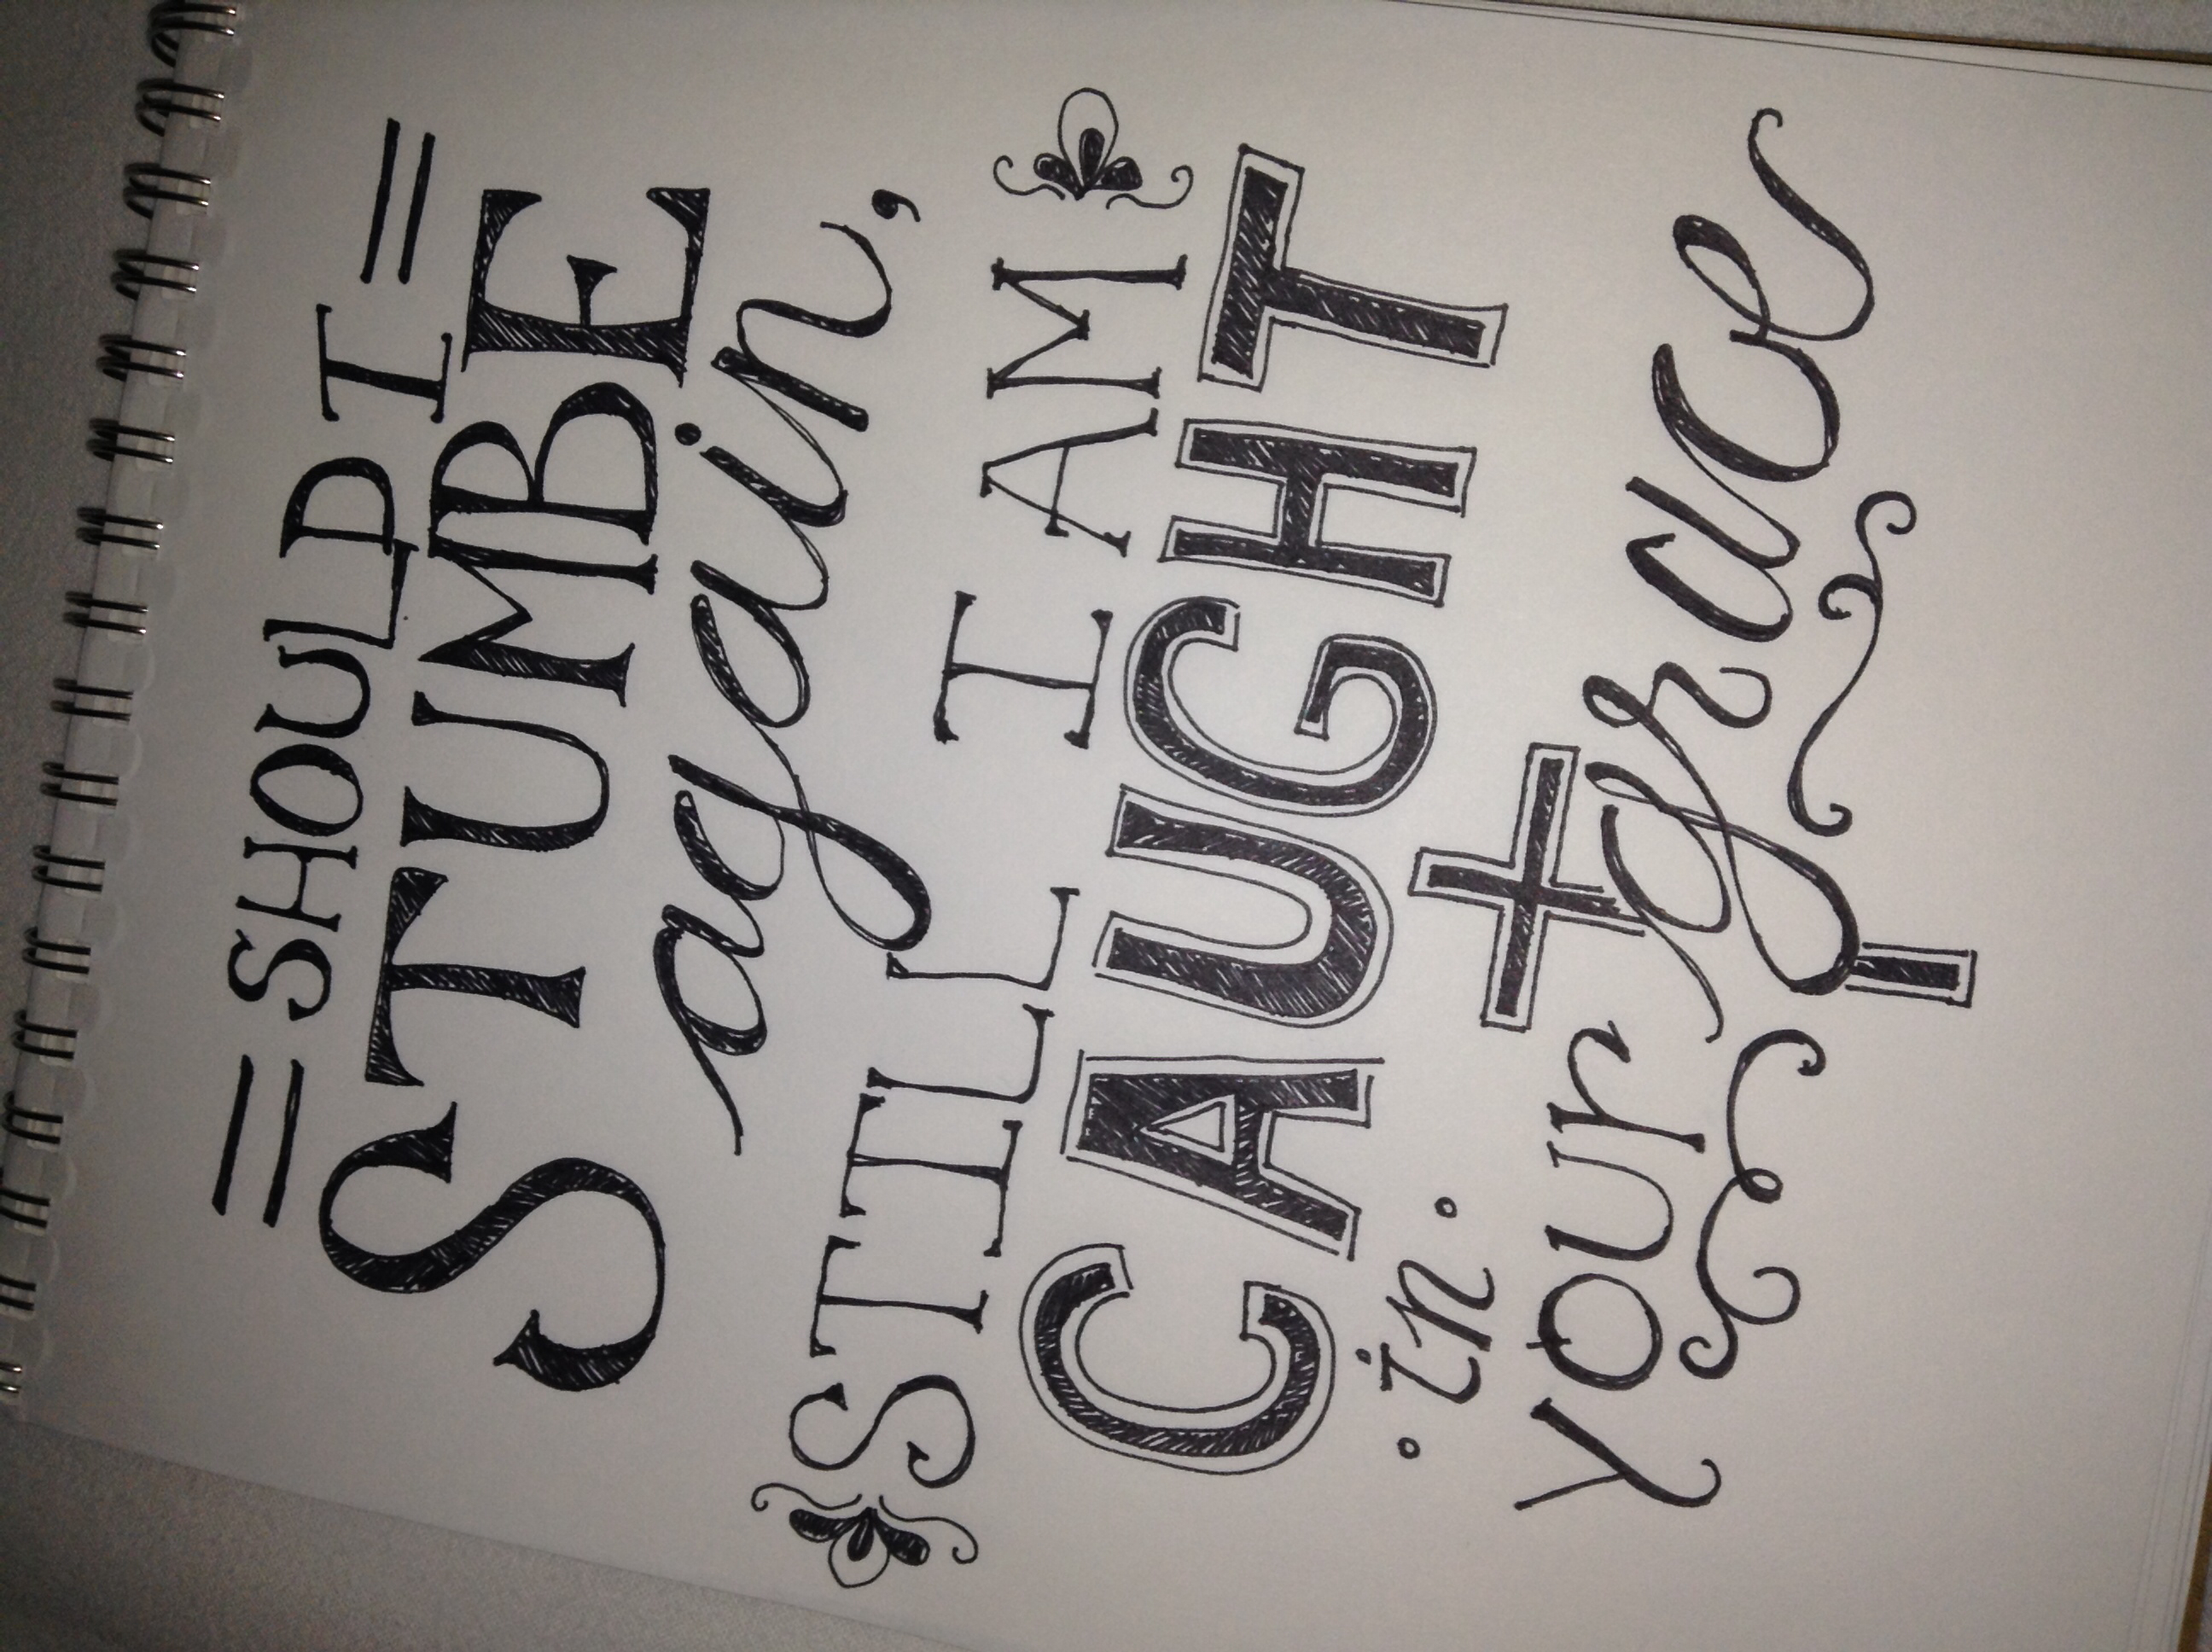 SHOULD I
STUMBE
again,
STILL I AM
CAUGHT
in
your grace